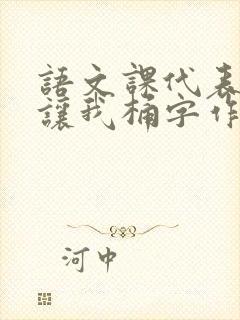 語文課代表
讓我桶字作
河中